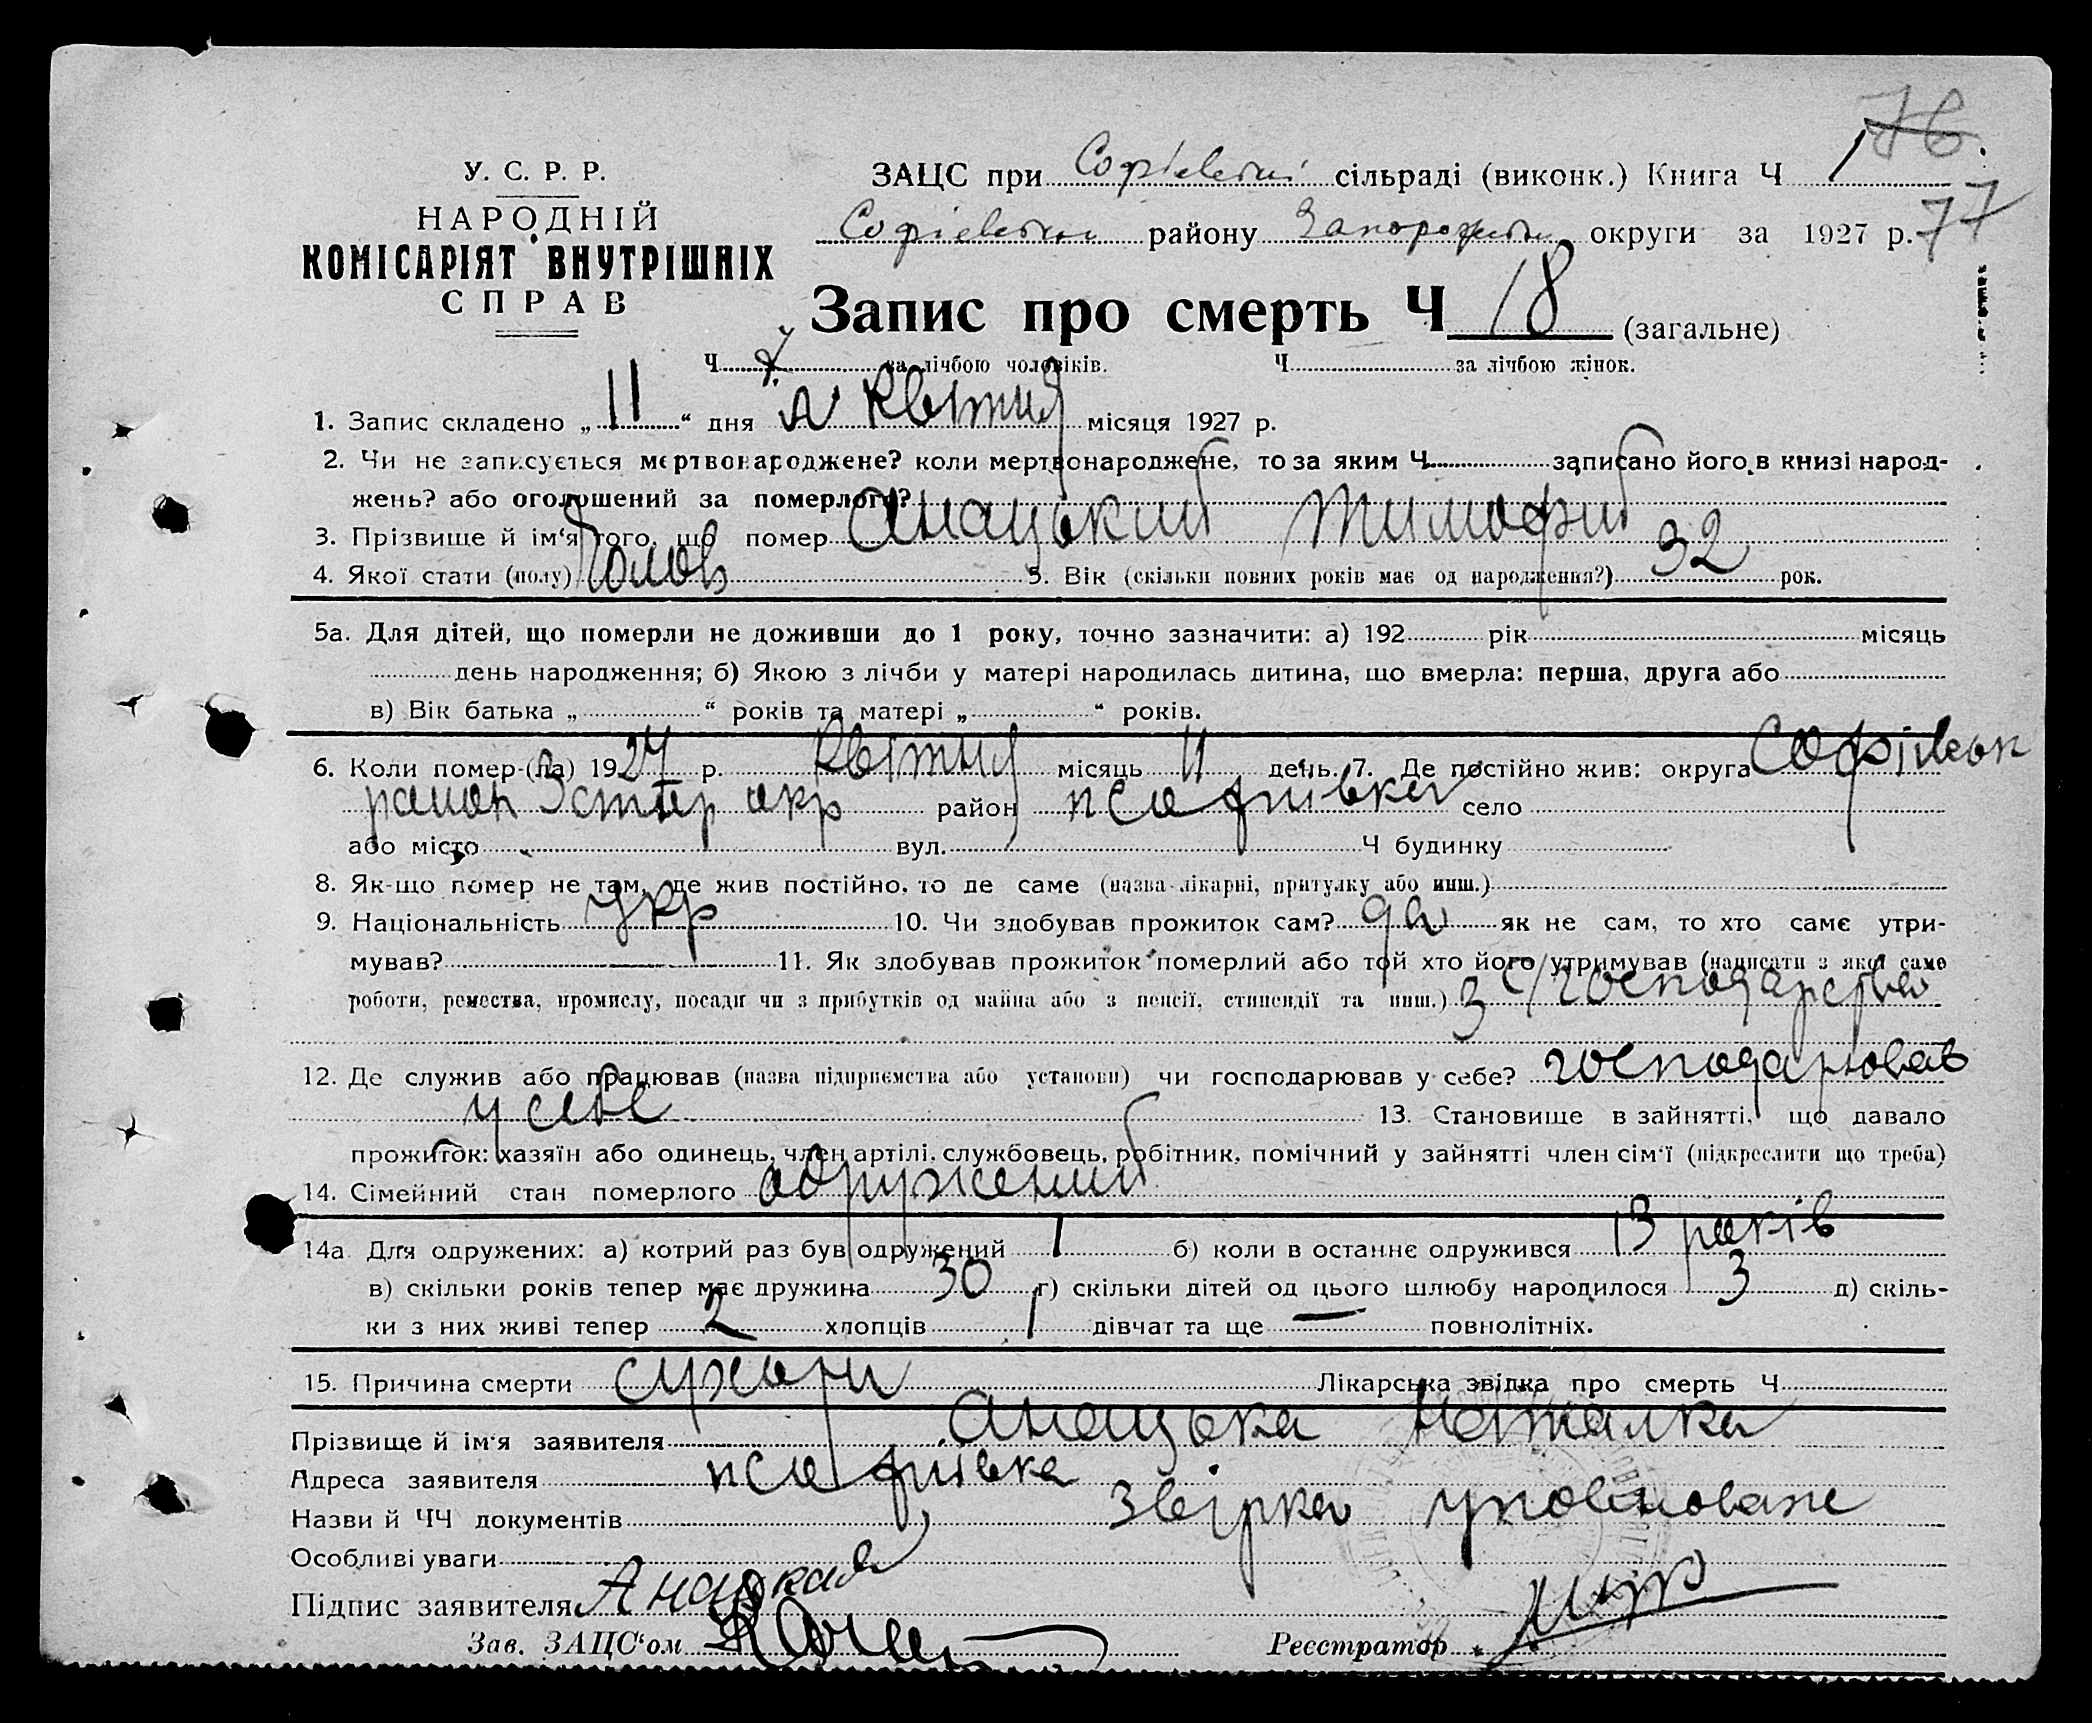 76.
У. С. Р. Р.
НАРОДНІЙ
КОМІСАРІЯТ ВНУТРІШНІХ
СПРАВ
ЗАЦС при Софієвській сільраді (виконк.) Книга Ч 1
Софієвськ району Запорожськ округи за 1927 р. 77
Запис про смерть Ч 18 (загальне)
Ч за лічбою чоловіків. Ч за лічбою жінок.
1. Запис складено „ 11 “ дня Квітня місяця 1927 р.
2. Чи не записується мертвонароджене? коли мертвонароджене, то за яким Ч записано його в книзі народ-
жень? або оголошений за померлого?
3. Прізвище й ім‘я того, що помер Анацький Тимофий
4. Якої стати (полу) Чолов 5. Вік (скільки повних років має од народження?) 32 рок.
5а. Для дітей, що померли не доживши до 1 року, точно зазначити: а) 192 рік місяць
день народження; б) Якою з лічби у матері народилась дитина, що вмерла: перша, друга або
в) Вік батька „ “ років та матері „ “ років.
6. Коли помер-(ла) 1927 р. Квітня місяць 11 день. 7. Де постійно жив: округа Софіівськ
район окр район село
або місто вул. Ч будинку
8. Як-що помер не там, де жив постійно, то де саме (назва лікарні, притулку або инш.)
9. Національність укр 10. Чи здобував прожиток сам? да як не сам, то хто саме утри-
мував? — 11. Як здобував прожиток померлий або той хто його утримував (написати з якої саме
роботи, ремества, промислу, посади чи з прибутків од майна або з пенсії, стипендії та инш.) з с/господарства
12. Де служив або працював (назва підприємства або установи) чи господарював у себе? господарював
у себе 13. Становище в зайнятті, що давало
прожиток: хазяїн або одинець, член артілі, службовець, робітник, помічний у зайнятті член сім‘ї (підкреслити що треба)
14. Сімейний стан померлого одружений
14а Для одружених: а) котрий раз був одружений 1 б) коли в останнє одружився 13 років
в) скільки років тепер має дружина 30 г) скільки дітей од цього шлюбу народилося 3 д) скіль-
ки з них живі тепер 2 хлопців 1 дівчат та ще — повнолітніх.
15. Причина смерти сухоти Лікарська звідка про смерть Ч
Прізвище й ім‘я заявителя Анацька Наталка
Адреса заявителя
Назви й ЧЧ документів звірка
Особливі уваги
Підпис заявителя Анацкая
Зав. ЗАЦС‘ом
Реєстратор